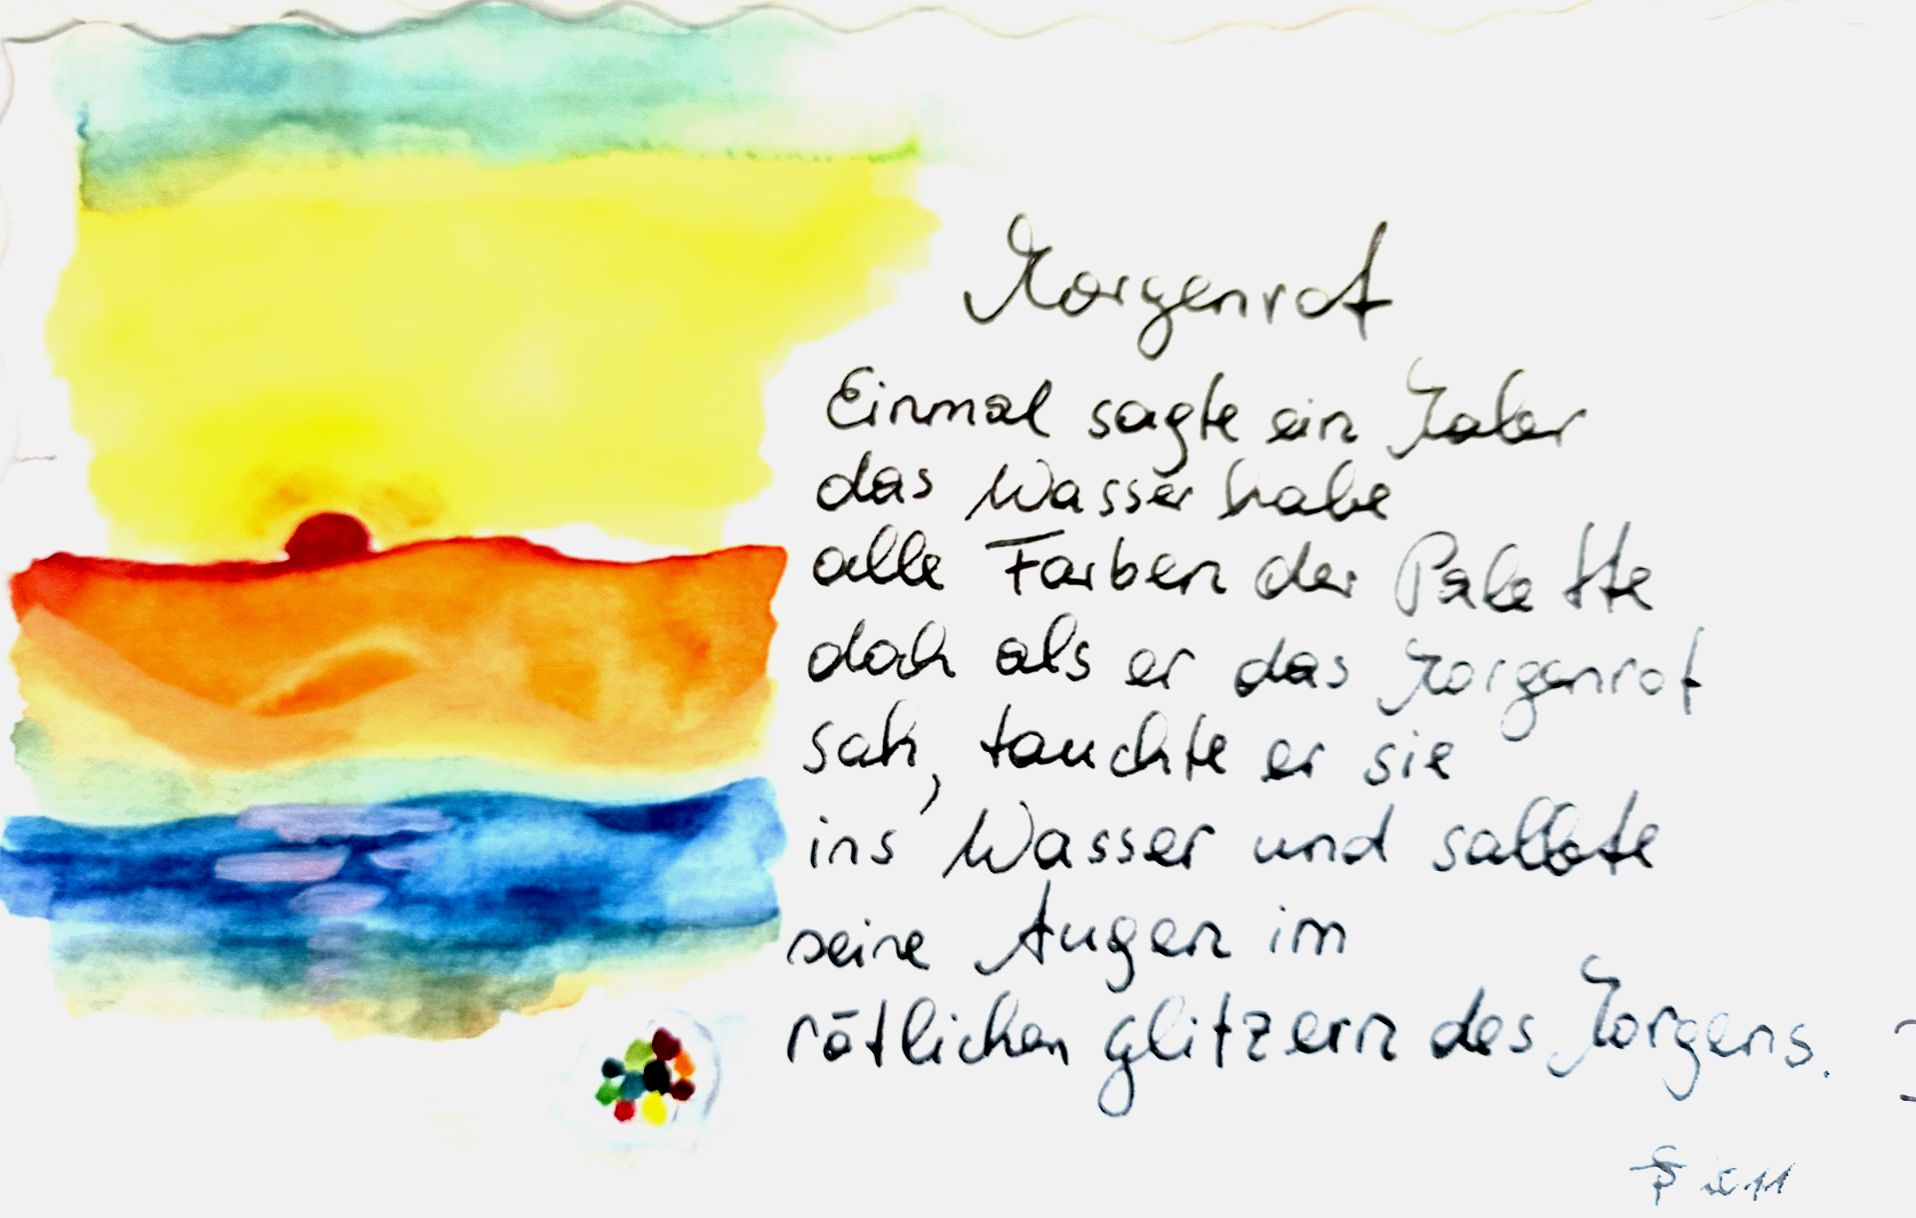 Morgenrot
Einmal sagte ein Maler
das Wasser habe
alle Farben der Palette
doch als er das Morgenrot
sah, tauchte er sie
ins Wasser und salbte
seine Augen im
rötlichen glitzern des Morgens.